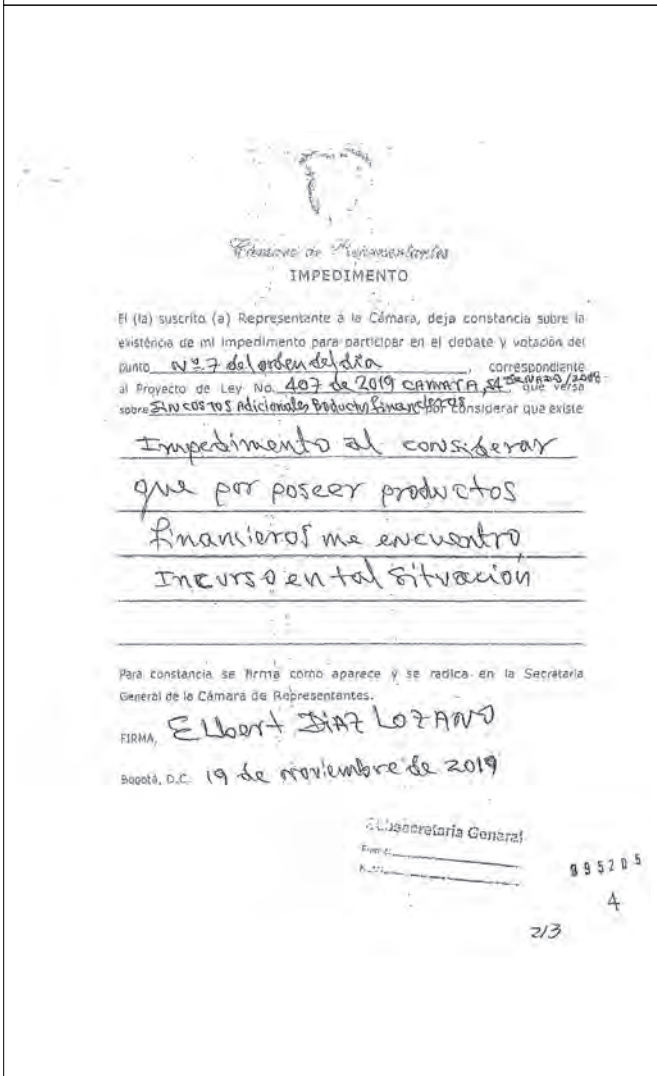 Cámara de Representantes
IMPEDIMENTO
El (la) suscrito (a) Representante a la Cámara, deja constancia sobre la
existencia de mi impedimento para participar en el debate y votación del
punto Nº 7 del orden del día, correspondiente
al Proyecto de Ley No. 407 de 2019 CAMARA, 54 SENADO/2018 que versa
sobre SIN COSTOS Adicionales Productos financieros por considerar que existe
Impedimento al considerar
que por poseer productos
financieros me encuentro
Incurso en tal Situación
Para constancia se firma como aparece y se radica en la Secretaría
General de la Cámara de Representantes.
FIRMA, Elbert DíAZ LOZANO
Bogotá, D.C. 19 de noviembre de 2019
Subsecretaría General
095205
4
2/3